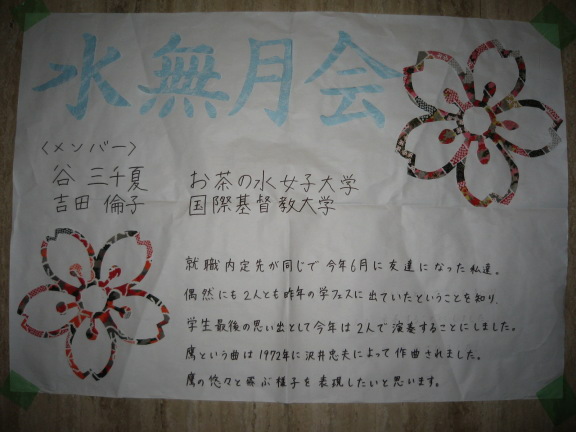 水無月会
〈メンバー〉
谷 三千夏 お茶の水女子大学
吉田 倫子 国際基督教大学
就職内定先が同じで今年6月に友達になった私達。
偶然にも2人とも昨年の学フェスに出ていたということを知り、
学生最後の思い出として今年は2人で演奏することにしました。
鷹という曲は1972年に沢井忠夫によって作曲されました。
鷹の悠々と飛ぶ様子を表現したいと思います。